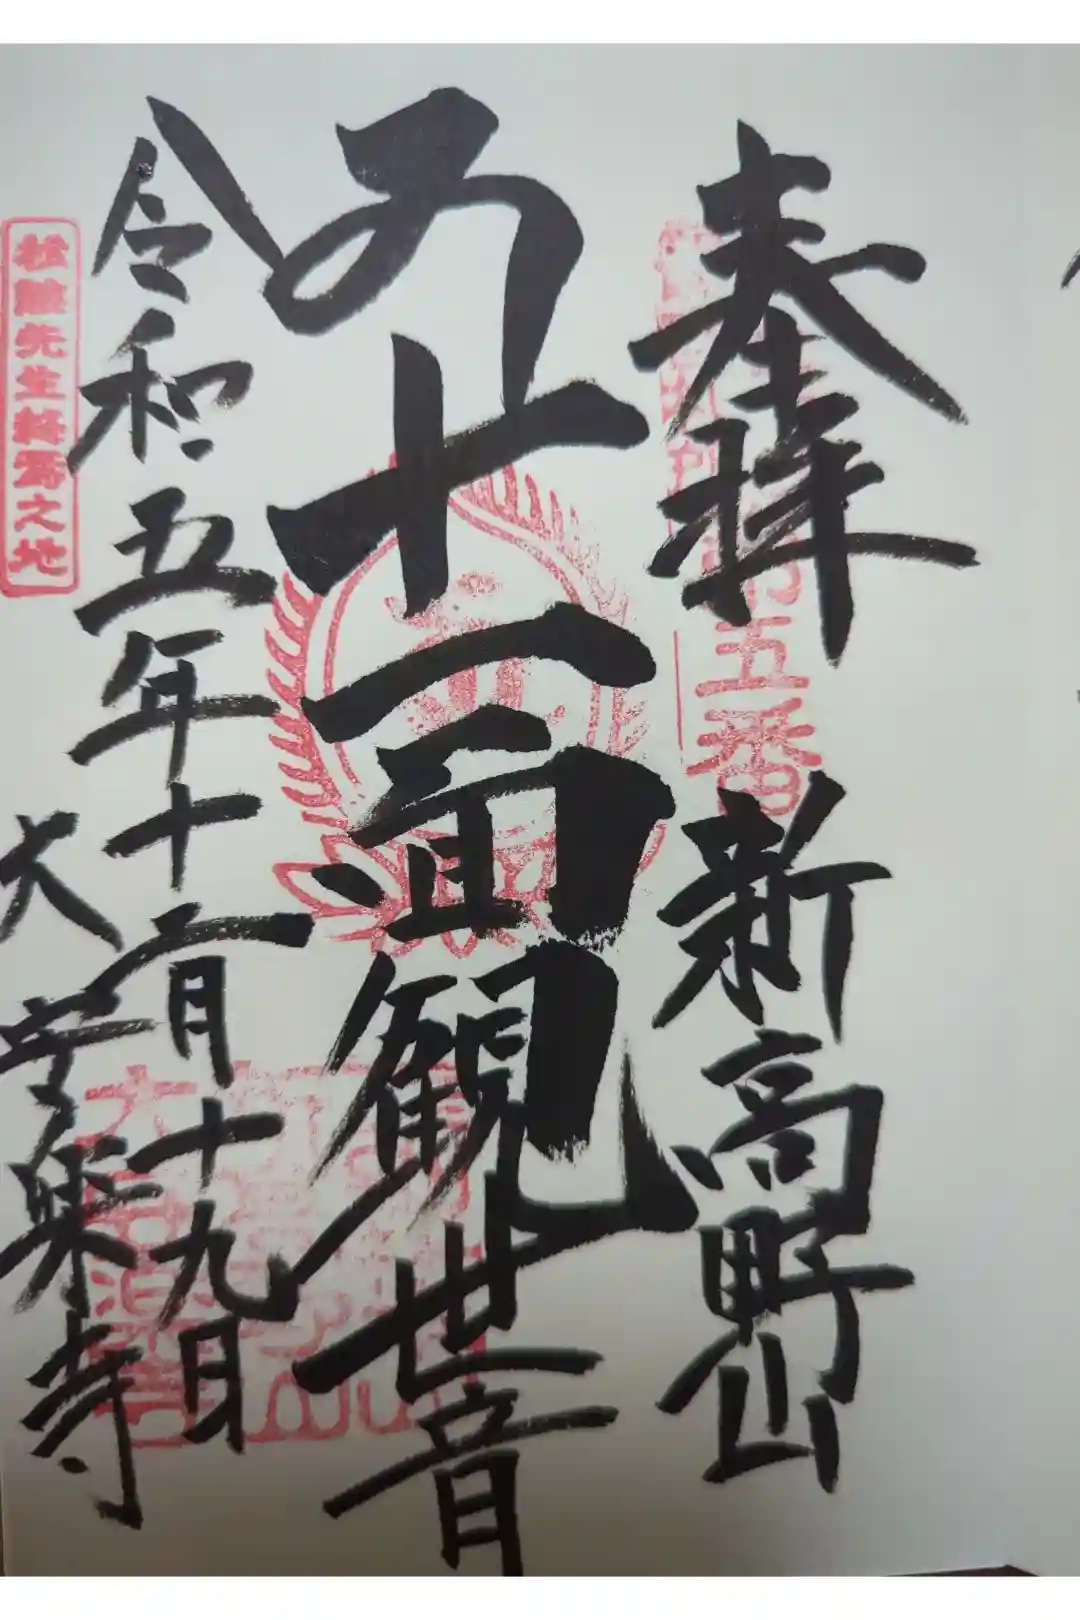 奉拝 新高野山
五番
の十一面観世音
令和五年十二月十九日
大安楽寺
松陰先生終焉之地